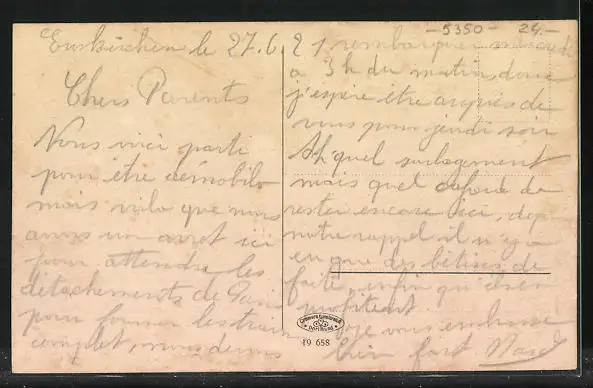 -5350- 24.-
Euskirchen le 27.6.21
Chers Parents
Nous voici parti
pour être démobilo
mais voila que nous
avons un arret ici
pour attendre les
détachements de
pour former les train
complet, nous devons
rembarquer
a 3h du matin donc
j'espère être auprès de
vous pour jeudi soir
Ah quel soulagement
mais quel de
rester encore ici,
notre rappel il n'y a
eu que des bêtises de
faite, enfin
profitent
je vous embrasse
bien fort
19 658